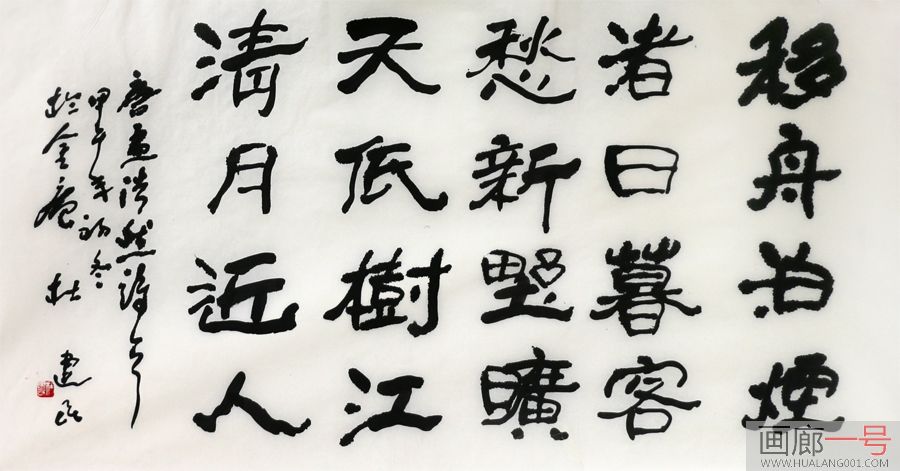 移舟泊煙
渚日暮客
愁新野曠
天低樹江
清月近人
唐孟浩然詩
甲午年初冬
於金 杜
画廊一号
WWW.HUALANG001.COM